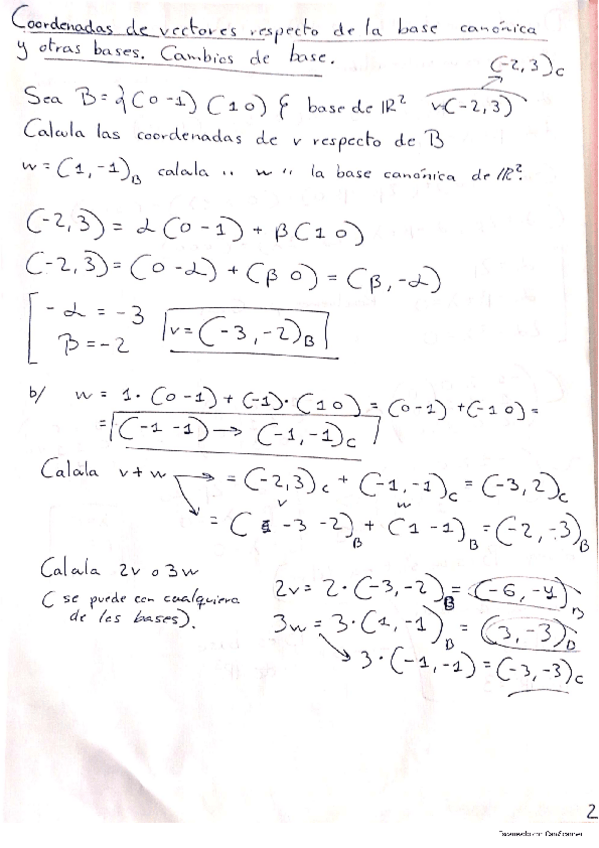 Coordenadas de vectores respecto de la base canónica
y otras bases. Cambios de base.
(-2,3)c
Sea B={(0 -1) (1 0)} base de IR² v(-2,3)
Calcula las coordenadas de v respecto de B
w=(1,-1)B calcula " w " la base canónica de IR².
(-2,3) = α(0 -1) + β(1 0)
(-2,3) = (0 -α) + (β 0) = (β, -α)
-α = -3
B = -2
v=(-3,-2)B
b/ w = 1·(0 -1) + (-1)·(1 0) = (0 -1) + (-1 0) =
= (-1 -1) → (-1,-1)c
Calcula v+w → = (-2,3)c + (-1,-1)c = (-3,2)c
v w
= ( -3 -2)B + (1 -1)B = (-2,-3)B
Calcula 2v o 3w
(se puede con cualquiera
de las bases).
2v = 2·(-3,-2)B = (-6,-4)B
3w = 3·(1,-1)B = (3,-3)B
3·(-1,-1) = (-3,-3)c
2